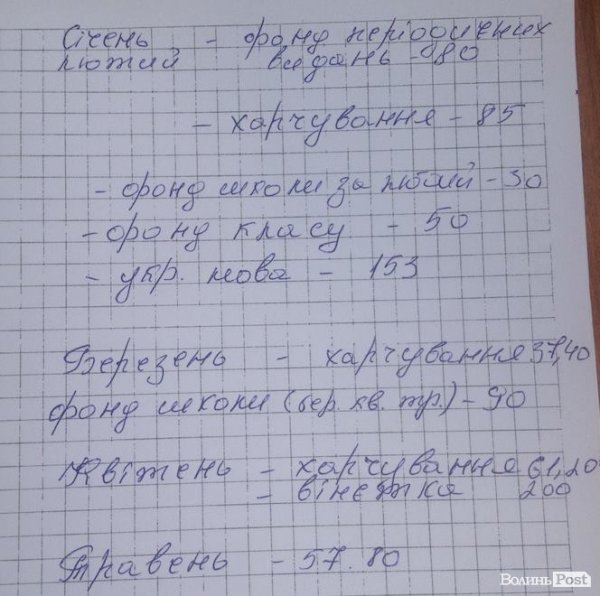 Січень - фонд періодичних
лютий видань - 80
- харчування - 85
- фонд школи за лютий - 30
- фонд класу - 50
- укр. мова - 153
Березень - харчування 37,40
фонд школи (бер. кв. тр.) - 90
Квітень - харчування 61,20
- вінєтка 200
Травень - 57.80
ВолиньPost